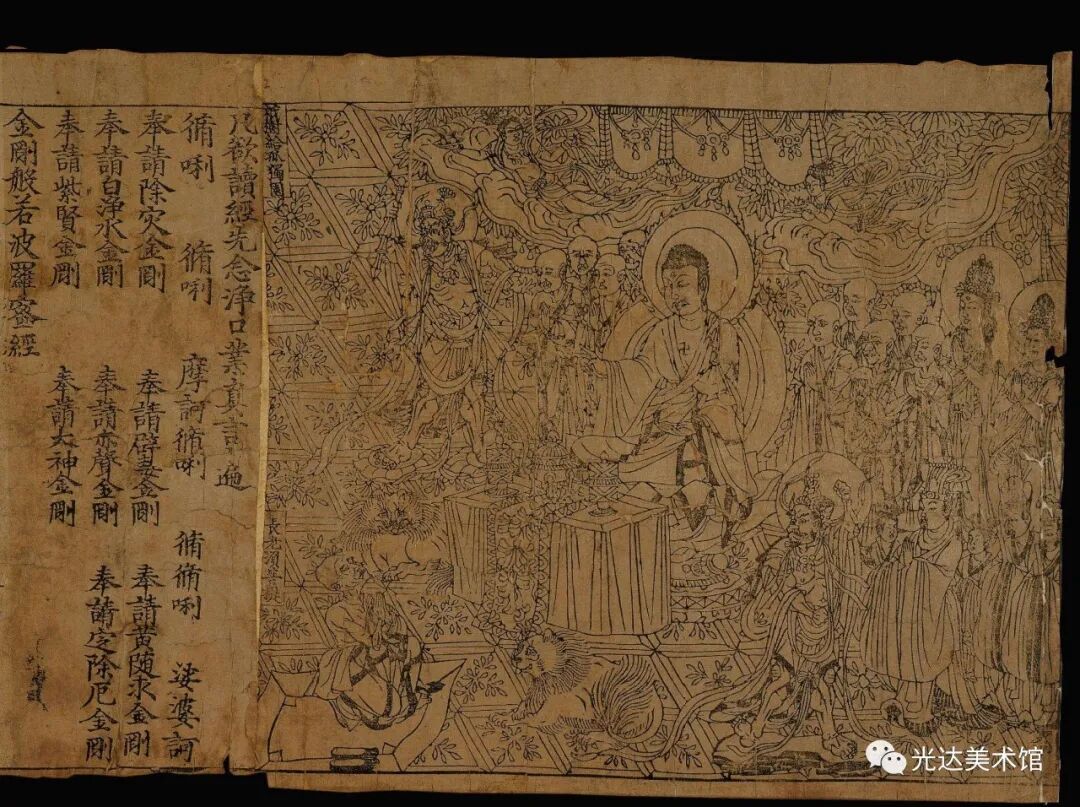 祇樹給孤獨園
長老須菩提
凡欲讀經先念淨口業真言一遍
脩唎 脩唎 摩訶脩唎 脩脩唎 娑婆訶
奉請除灾金剛 奉請辟毒金剛 奉請黃随求金剛
奉請白淨水金剛 奉請赤聲金剛 奉請定除厄金剛
奉請紫賢金剛 奉請大神金剛
金剛般若波羅蜜經
光达美术馆